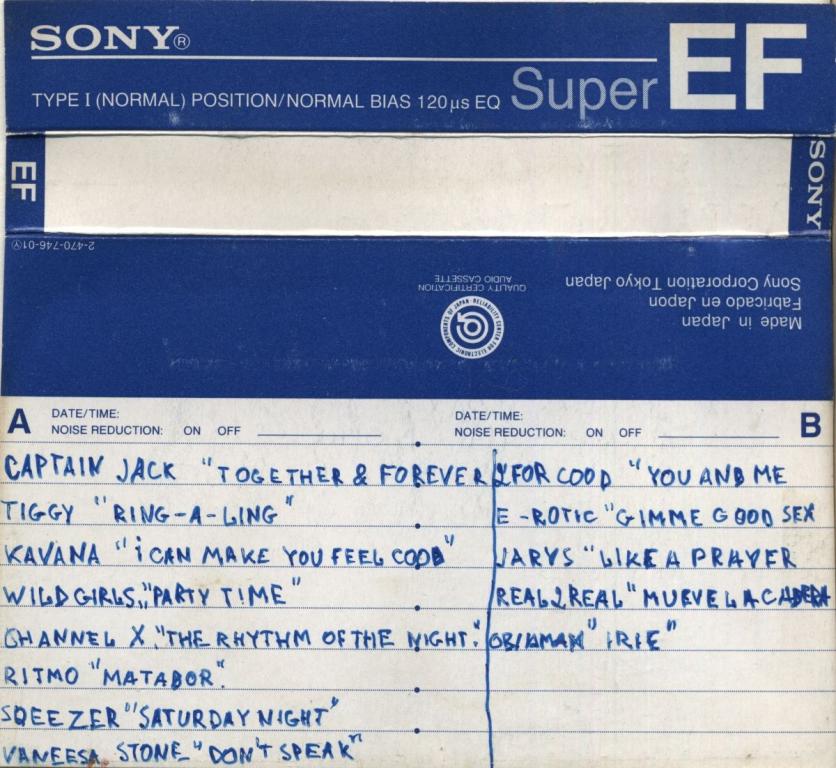 SONY®
TYPE I (NORMAL) POSITION/NORMAL BIAS 120µs EQ Super EF
EF
SONY
2-470-746-01
QUALITY CERTIFICATION
AUDIO CASSETTE
RELIABILITY CENTER FOR ELECTRONIC COMPONENTS OF JAPAN
Made in Japan
Fabricado en Japon
Sony Corporation Tokyo Japan
A DATE/TIME:
NOISE REDUCTION: ON OFF
DATE/TIME: B
NOISE REDUCTION: ON OFF
CAPTAIN JACK "TOGETHER & FOREVER
TIGGY "RING-A-LING"
KAVANA "i CAN MAKE YOU FEEL COOD"
WILD GIRLS,"PARTY TIME"
CHANNEL X."THE RHYTHM OF THE NIGHT."
RITMO "MATADOR".
SQEEZER "SATURDAY NIGHT"
VANEESA STONE "DON'T SPEAK"
2 FOR COOD "YOU AND ME
E-ROTIC "GIMME GOOD SEX
JARYS "LIKE A PRAYER
REAL2REAL "MUEVE LA CADERA
"IRIE"